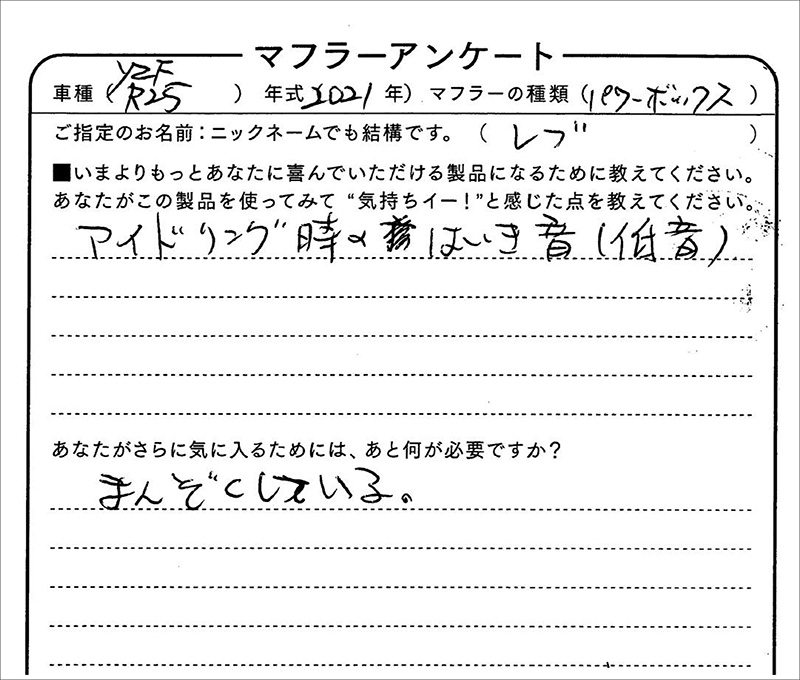 マフラーアンケート
車種 (YZF R25) 年式 2021 年) マフラーの種類 (パワーボックス)
ご指定のお名前:ニックネームでも結構です。 (レブ)
■いまよりもっとあなたに喜んでいただける製品になるために教えてください。
あなたがこの製品を使ってみて “気持ちイー!”と感じた点を教えてください。
アイドリング時のはいき音(低音)
あなたがさらに気に入るためには、あと何が必要ですか?
まんぞくしている。